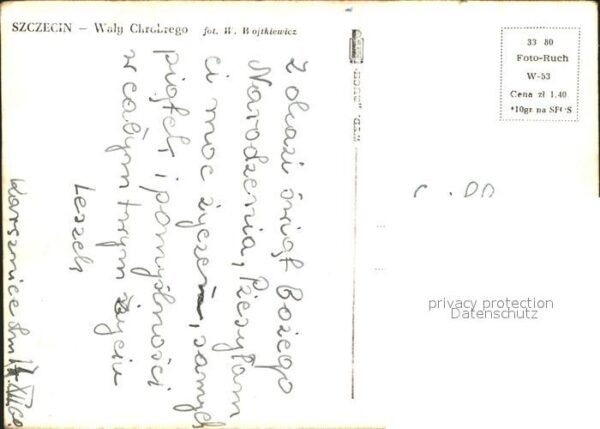 SZCZECIN — Wały Chrobrego fot. W. Wojtkiewicz
33 80
Foto-Ruch
W-53
Cena zł 1.40
*10gr na SFOS
Z okazi świąt Bożego
Narodzenia, Przesyłam
ci moc życzeń, samych
piątek i pomyślności
w całym twym życiu
Leszek
Karsznice dn 17 XII
privacy protection
Datenschutz